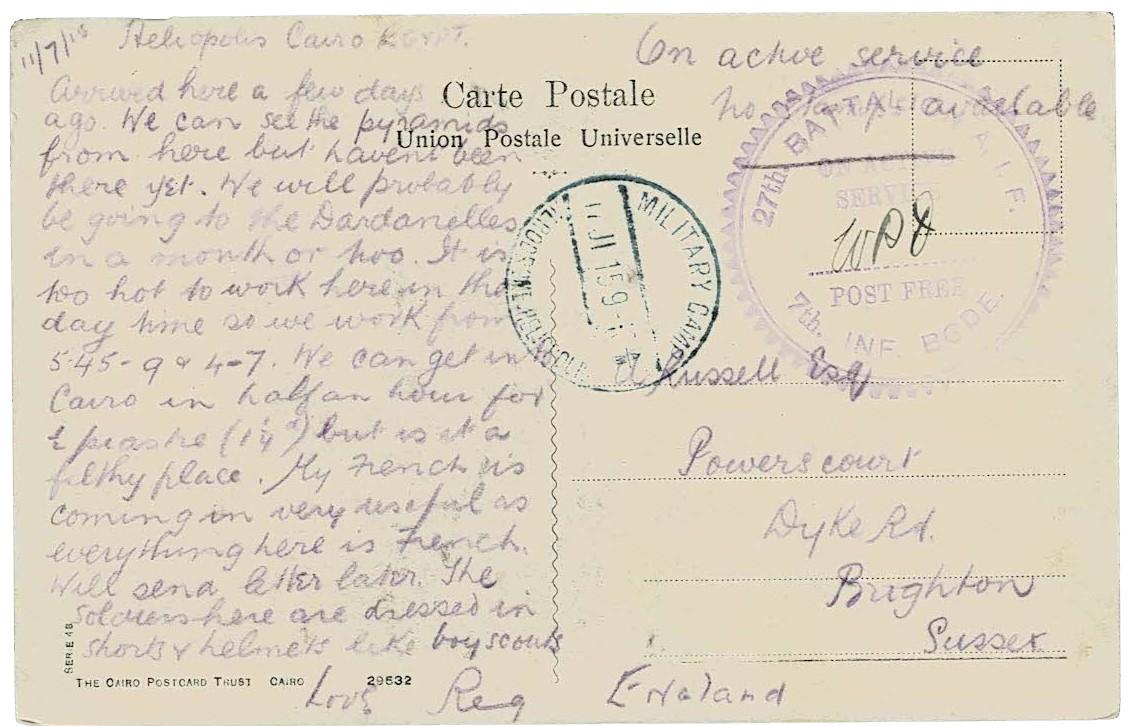 11/7/15 Heliopolis Cairo EGYPT.
Arrived here a few days
ago. We can see the pyramids
from here but havent been
there yet. We will probably
be going to the Dardanelles
in a month or two. It is
too hot to work here in the
day time so we work from
5.45-9 & 4-7. We can get in
Cairo in half an hour for
½ piastre (1¼d) but is it a
filthy place. My French is
coming in very useful as
everything here is French.
Will send letter later. The
soldiers here are dressed in
shorts & helmets like boy scouts
Love Reg
SERIE 48
THE CAIRO POSTCARD TRUST CAIRO 29532
Carte Postale
Union Postale Universelle
On active service
no stamps available
27th BATTAL A.I.F.
ON ACTIVE
SERVICE
POST FREE
7th. INF BGDE.
MILITARY CAMP
JL 15 9
Russell Esq
Powerscourt
Dyke Rd.
Brighton
Sussex
England